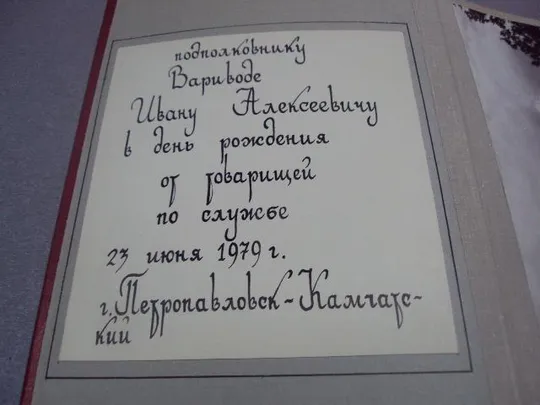 подполковнику
Вариводе
Ивану Алексеевичу
в день рождения
от товарищей
по службе
23 июня 1979 г.
г. Петропавловск-Камчатс-
кий